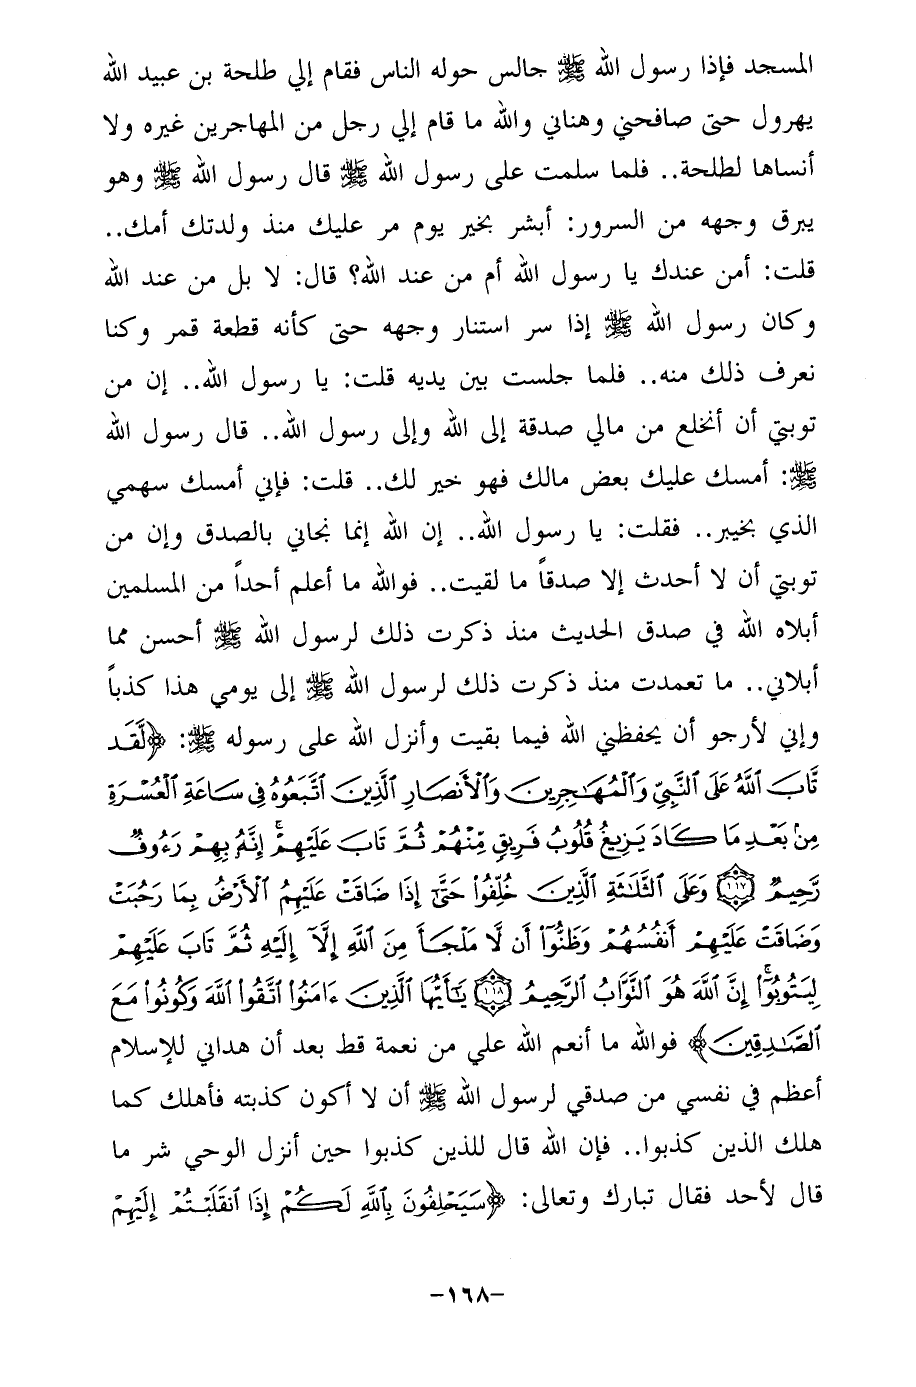 المسجد فإذا رسول الله ﷺ جالس حوله الناس فقام إلي طلحة بن عبيد الله
يهرول حتى صافحني وهناني والله ما قام إلي رجل من المهاجرين غيره ولا
أنساها لطلحة.. فلما سلمت على رسول الله ﷺ قال رسول الله ﷺ وهو
يبرق وجهه من السرور: أبشر بخير يوم مر عليك منذ ولدتك أمك..
قلت: أمن عندك يا رسول الله أم من عند الله؟ قال: لا بل من عند الله
وكان رسول الله ﷺ إذا سر استنار وجهه حتى كأنه قطعة قمر وكنا
نعرف ذلك منه.. فلما جلست بين يديه قلت: يا رسول الله.. إن من
توبتي أن أنخلع من مالي صدقة إلى الله وإلى رسول الله.. قال رسول الله
ﷺ: أمسك عليك بعض مالك فهو خير لك.. قلت: فإني أمسك سهمي
الذي بخيبر.. فقلت: يا رسول الله.. إن الله إنما نجاني بالصدق وإن من
توبتي أن لا أحدث إلا صدقاً ما لقيت.. فوالله ما أعلم أحداً من المسلمين
أبلاه الله في صدق الحديث منذ ذكرت ذلك لرسول الله ﷺ أحسن مما
أبلاني.. ما تعمدت منذ ذكرت ذلك لرسول الله ﷺ إلى يومي هذا كذباً
وإني لأرجو أن يحفظني الله فيما بقيت وأنزل الله على رسوله ﷺ: ﴿لَّقَد
تَّابَ ٱللَّهُ عَلَى ٱلنَّبِيِّ وَٱلْمُهَٰجِرِينَ وَٱلْأَنصَارِ ٱلَّذِينَ ٱتَّبَعُوهُ فِى سَاعَةِ ٱلْعُسْرَةِ
مِنۢ بَعْدِ مَا كَادَ يَزِيغُ قُلُوبُ فَرِيقٍ مِّنْهُمْ ثُمَّ تَابَ عَلَيْهِمْ ۚ إِنَّهُۥ بِهِمْ رَءُوفٌ
رَّحِيمٌ ١١٧ وَعَلَى ٱلثَّلَٰثَةِ ٱلَّذِينَ خُلِّفُوا۟ حَتَّىٰٓ إِذَا ضَاقَتْ عَلَيْهِمُ ٱلْأَرْضُ بِمَا رَحُبَتْ
وَضَاقَتْ عَلَيْهِمْ أَنفُسُهُمْ وَظَنُّوٓا۟ أَن لَّا مَلْجَأَ مِنَ ٱللَّهِ إِلَّآ إِلَيْهِ ثُمَّ تَابَ عَلَيْهِمْ
لِيَتُوبُوٓا۟ ۚ إِنَّ ٱللَّهَ هُوَ ٱلتَّوَّابُ ٱلرَّحِيمُ ١١٨ يَٰٓأَيُّهَا ٱلَّذِينَ ءَامَنُوا۟ ٱتَّقُوا۟ ٱللَّهَ وَكُونُوا۟ مَعَ
ٱلصَّٰدِقِينَ﴾ فوالله ما أنعم الله علي من نعمة قط بعد أن هداني للإسلام
أعظم في نفسي من صدقي لرسول الله ﷺ أن لا أكون كذبته فأهلك كما
هلك الذين كذبوا.. فإن الله قال للذين كذبوا حين أنزل الوحي شر ما
قال لأحد فقال تبارك وتعالى: ﴿سَيَحْلِفُونَ بِٱللَّهِ لَكُمْ إِذَا ٱنقَلَبْتُمْ إِلَيْهِمْ
-١٦٨-